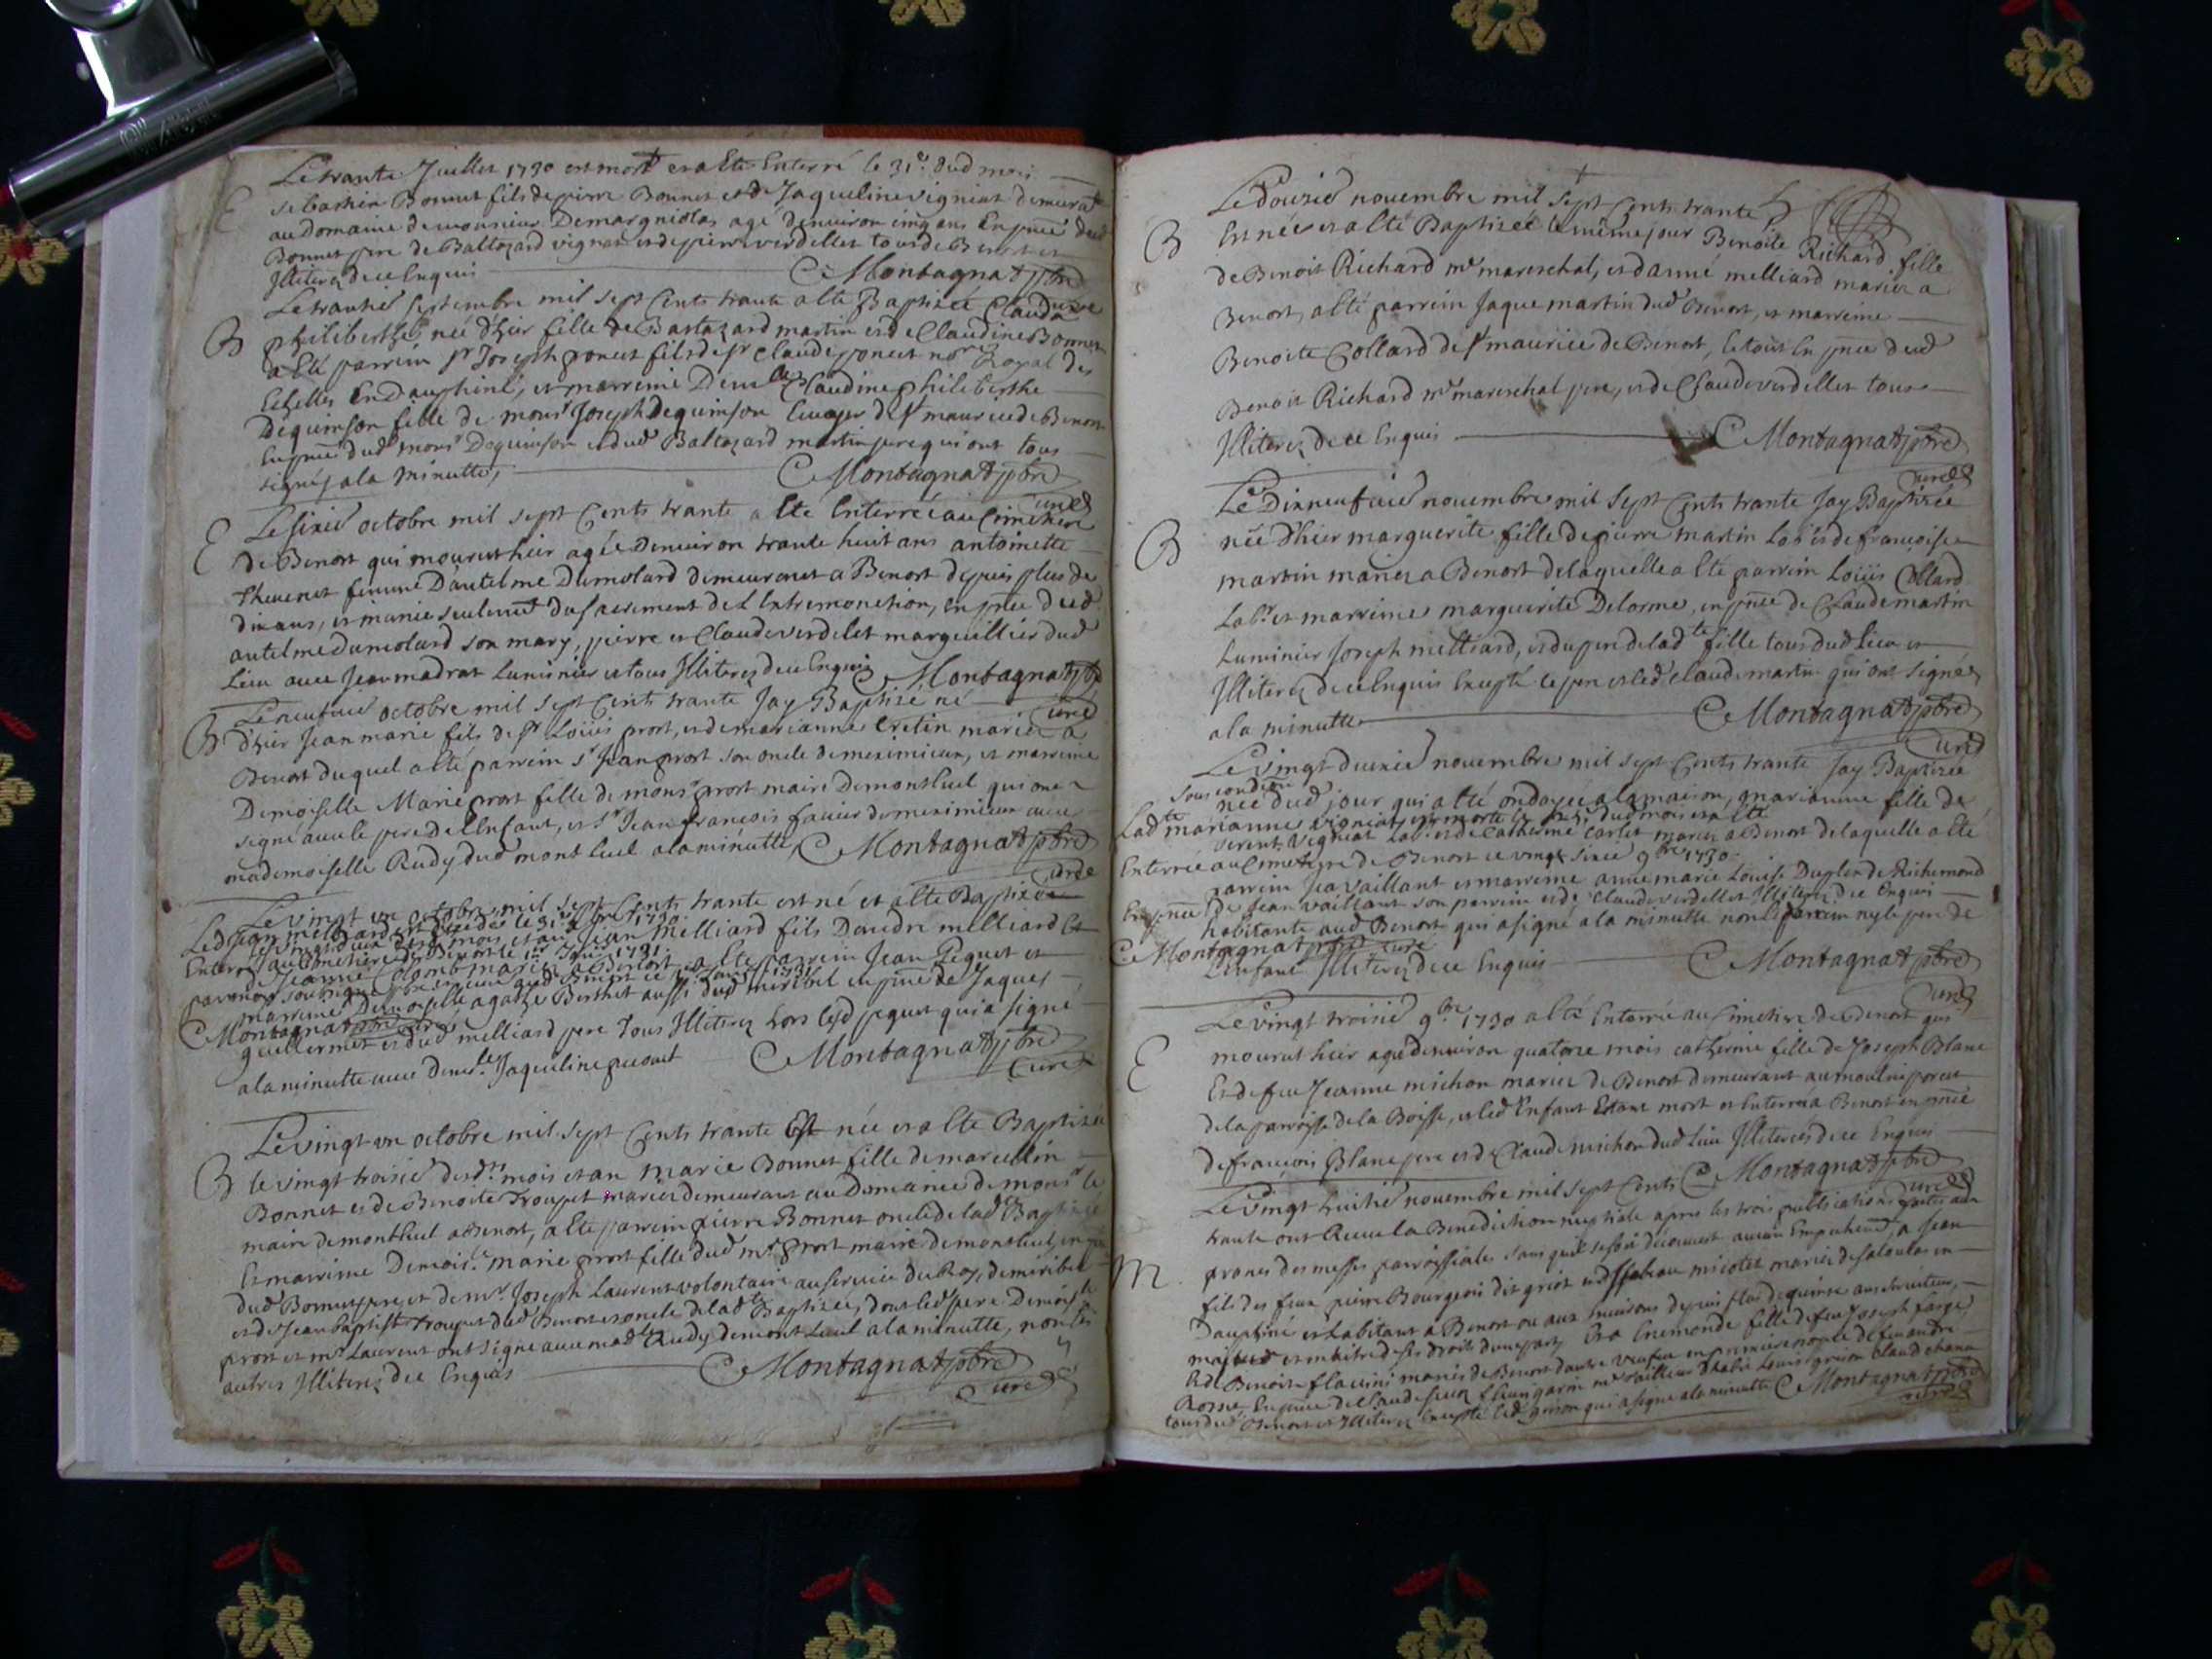 Le trante Juillet 1730 est mort et a Eté Enterré le 31e dud mois
E
sebastien Bonnet fils de pierre Bonnet et de Jaqueline vigniat demurat
au domaine de monsieur Demargniolas agé denuiron cinq ans En pnce dud
Bonnet pere de Baltazard vignat et de pierre verdellet tous de Benost et
Illiterez de ce Enquis Montagnat ptre
curé
Le trantie septembre mil sept Cents trante a Eté Baptizée Clauda
B
philiberthe née d'hier fille de Bartazard martin et de Claudine Bonnet
a Eté parrein sr Joseph poncet fils de sr Claude poncet nore Royal des
Echelles En Dauphiné, et marreine Demlle Claudine philiberthe
Dequinson fille de monsr Joseph Dequinson Ecuyer de st maurice de Benost
En pnce dud monsr Dequinson et dud Baltazard martin pere qui ont tous
signés a la minutte, Montagnat ptre
curé
E
Le sixie octobre mil sept Cents trante a Eté Enterrée au Cimetiere
de Benost qui mourut hier agée denuiron trante huit ans antoinette
Theuenet femme D'antelme Dumolard demeurant a Benost depuis plus de
dix ans, et munie seulemt du sacrement de L'Extremonction, en pnce dud
antelme Dumolard son mary, pierre et Claude verdelet marguillier dud
Lieu auec Jean madrat Luminier et tous Illiterez de ce Enquis Montagnat ptre
curé
Le neufuie octobre mil sept Cents trante Jay Baptisé né
B
d'hier Jean marie fils de sr Loüis prost, et de marianne Cretin mariez a
Benost duquel a eté parrein sr Jean prost son oncle de meximieux, et marreine
Demoiselle Marie prost fille de monsr prost maire de montluel qui ont
signé auec le pere de l'Enfant, et sr Jean francois fauier de meximieux auec
mademoiselle Rudy dud montluel a la minutte, Montagnat ptre
curé
Le vingt un octobre mil sept Cents trante est né et a Eté Baptizé
Led Jean milliard est decedé le 31e xbre 1730
Jean Milliard fils Dandre milliard Et
Enterré au Cimetiere de Benost le 1er Janr 1731
Jeanne Colomb mariez a Benost, a Eté parrein Jean Pequet et
marreine Demoiselle agathe Berthet aussi dud miribel en pnce de Jaques
Montagnat ptre curé
guillermet et dud milliard pere Tous Illiterez hors lesd pequet qui a signé
a la minutte auec Demlle Jaqueline Montagnat ptre
curé
Le vingt un octobre mil sept Cents trante Est née et a Eté Baptizée
B
le vingt troisie desdts mois et an Marie Bonnet fille de marcellin
Bonnet et de Benoite Troupet mariez demeurant au Domaine de monsr le
maire de montluel a Benost, a Eté parrein pierre Bonnet oncle de lad Baptizée
Et marreine Demoislle marie prost fille dud mr prost maire de montluel, en pnce
dud Bonnet pere, et de mr Joseph Laurent volontaire au seruice du Roy, de miribel
et de Jean Baptiste Troupet dud Benost et oncle de ladte Baptizée, dont led pere Demoislle
prost et mr Laurent ont signé auec madlle Rudy de montluel a la minutte, non les
autres Illiterez de ce Enquis Montagnat ptre
curé
Le Douzie novembre mil sept Cents trante
B
Est née et a Eté Baptizée le même jour Benoite Richard fille
de Benoit Richard me mareschal, et d'anné melliard mariez a
Benost, a Eté parrein Jaque martin dud Benost, et marreine
Benoite Collard de st maurice de Benost, le tout En pnce dud
Benoit Richard me mareschal pere, et de Claude verdellet tous
Illiterez de ce Enquis Montagnat ptre
curé
Le Dixneufuie novembre mil sept Cents trante Jay Baptizée
B
née d'hier marguerite fille de pierre martin Labr et de francoise
martin mariez a Benost de laquelle a Eté parrein Loüis Collard
Labr et marreine marguerite Delorme, en pnce de Claude martin
Luminier Joseph melliard, et du pere de ladte fille tous dud Lieu et
Illiterez de ce Enquis Excepté le pere et led Claude martin qui ont signés
a la minutte Montagnat ptre
curé
Le vingt deuxie novembre mil sept Cents trante Jay Baptizée
sous condion
née dud jour qui a Eté ondoyée a la maison, marianne fille de
Ladte marianne vigniat est morte le dud mois et a Eté
vigniat Labr et de Catherine Carlet mariez a Benost de laquelle a Eté
Enterrée au Cimetiere de Benost ce vingt sixie 9bre 1730
parrein Jean vaillant et marreine anne marie Louise Dupler de Richemond
En pnce de Jean vaillant son parrein et de Claude verdellet Illiterez de ce Enquis
habitante aud Benost qui a signé a la minutte non le parrein ny le pere de
Montagnat ptre curé
L'Enfant Illiterez de ce Enquis Montagnat ptre
curé
Le vingt troisie 9bre 1730 a Eté Enterrée au Cimetiere de Benost qui
E
mourut hier agée denuiron quatorze mois catherine fille de Joseph Blanc
Et de feu Jeanne michon mariez de Benost demeurant au moulin porcet
de la parroisse de la Boisse, et led Enfant Estant mort et Enterré a Benost en pnce
de francois Blanc pere et de Claude michon dud Lieu Illiterez de ce Enquis
Montagnat ptre
curé
Le vingt huitie novembre mil sept Cents
trante ont Receu la Benediction nuptiale apres les trois publications faites aux
M
prones des messes parroissiales sans quil se soit decouuert aucun Empechemt, a Jean
fils des feux pierre Bourgeois dit griot et d'Isabeau micolet mariez de en
Dauphiné et habitant a Benost ou aux Enuirons depuis plus de quinze ans
majeur et maitre de ses droits d'une part, Et a Enemonde fille de feu Joseph farge
Et de Benoite flaccini mariez de Benost d'autre veufue en premiere nopce de feu andre
Rosne En pnce de Claude garin me tailleur d'habit Louis grison Claude
tous dud Benost et Illiterez Excepté led grison qui a signé a la minutte Montagnat ptre
curé